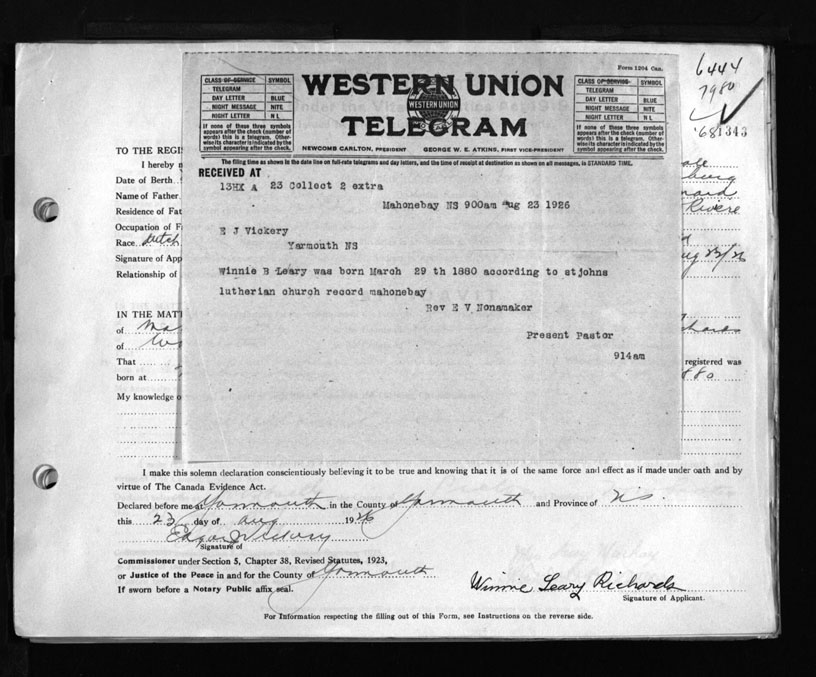 Form 1204 Can.
6444
7980
681343
CLASS OF SERVICE SYMBOL
TELEGRAM
DAY LETTER BLUE
NIGHT MESSAGE NITE
NIGHT LETTER N L
If none of these three symbols
appears after the check (number of
words) this is a telegram. Other-
wise its character is indicated by the
symbol appearing after the check.
WESTERN UNION
WESTERN UNION
TELEGRAM
NEWCOMB CARLTON, PRESIDENT GEORGE W. E. ATKINS, FIRST VICE-PRESIDENT
CLASS OF SERVICE SYMBOL
TELEGRAM
DAY LETTER BLUE
NIGHT MESSAGE NITE
NIGHT LETTER N L
If none of these three symbols
appears after the check (number of
words) this is a telegram. Other-
wise its character is indicated by the
symbol appearing after the check.
The filing time as shown in the date line on full-rate telegrams and day letters, and the time of receipt at destination as shown on all messages, is STANDARD TIME.
RECEIVED AT
13HX A 23 Collect 2 extra
Mahonebay NS 900am Aug 23 1926
E J Vickery
Yarmouth NS
Winnie B Leary was born March 29 th 1880 according to stjohns
lutherian church record mahonebay
Rev E V Nonamaker
Present Pastor
914am
TO THE REGI
I hereby
Date of Berth
Name of Father
Residence of Fat
Occupation of F
Race Dutch
Signature of App
Aug 23/26
Relationship of
IN THE MATT
of
of
That registered was
born at 880
My knowledge o
I make this solemn declaration conscientiously believing it to be true and knowing that it is of the same force and effect as if made under oath and by
virtue of The Canada Evidence Act.
Declared before me at Yarmouth in the County of Yarmouth and Province of N.S.
this 23 day of Aug 1926
Signature of
Commissioner under Section 5, Chapter 38, Revised Statutes, 1923,
or Justice of the Peace in and for the County of Yarmouth
If sworn before a Notary Public affix seal.
Winnie Leary Richards
Signature of Applicant.
For Information respecting the filling out of this Form, see Instructions on the reverse side.